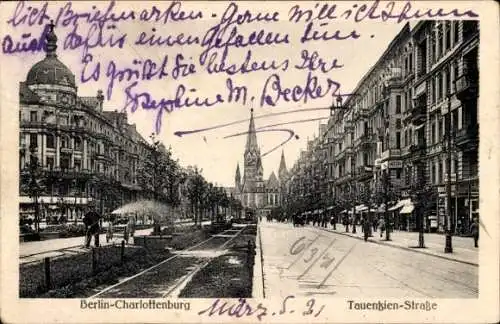 lich Briefmarken – Gerne will ich Ihnen
auch dafür einen Gefallen tun.
Es grüßt Sie bestens Ihre
Josephine M. Becker
Berlin-Charlottenburg
Tauentzien-Straße
März 5. 21